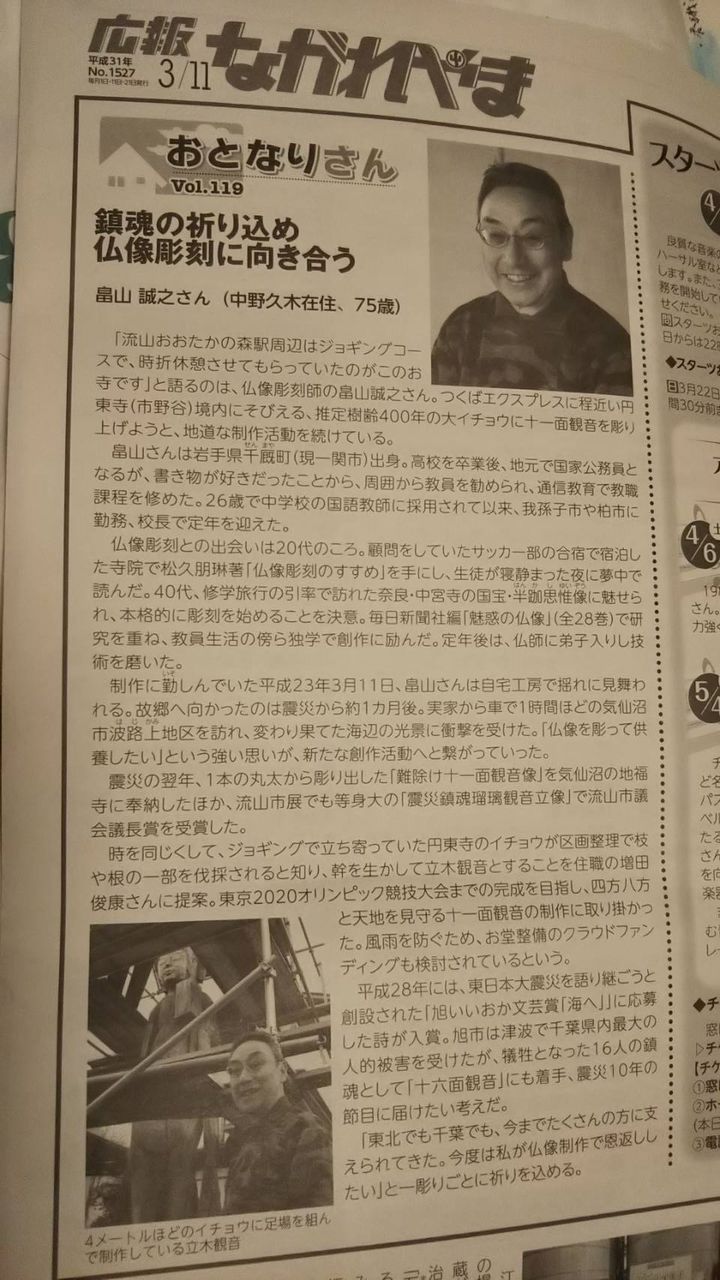 広報
ながれやま
平成31年
No.1527
毎月1日・11日・21日発行
3/11
おとなりさん
Vol.119
鎮魂の祈り込め
仏像彫刻に向き合う
畠山 誠之さん（中野久木在住、75歳）
「流山おおたかの森駅周辺はジョギングコー
スで、時折休憩させてもらっていたのがこのお
寺です」と語るのは、仏像彫刻師の畠山誠之さん。つくばエクスプレスに程近い円
東寺(市野谷)境内にそびえる、推定樹齢400年の大イチョウに十一面観音を彫り
上げようと、地道な制作活動を続けている。
せん まや
畠山さんは岩手県千厩町(現一関市)出身。高校を卒業後、地元で国家公務員と
なるが、書き物が好きだったことから、周囲から教員を勧められ、通信教育で教職
課程を修めた。26歳で中学校の国語教師に採用されて以来、我孫子市や柏市に
勤務、校長で定年を迎えた。
仏像彫刻との出会いは20代のころ。顧問をしていたサッカー部の合宿で宿泊し
た寺院で松久朋琳著「仏像彫刻のすすめ」を手にし、生徒が寝静まった夜に夢中で
はん か し ゆい ぞう
読んだ。40代、修学旅行の引率で訪れた奈良・中宮寺の国宝・半跏思惟像に魅せら
れ、本格的に彫刻を始めることを決意。毎日新聞社編「魅惑の仏像」(全28巻)で研
究を重ね、教員生活の傍ら独学で創作に励んだ。定年後は、仏師に弟子入りし技
術を磨いた。
いそ
制作に勤しんでいた平成23年3月11日、畠山さんは自宅工房で揺れに見舞わ
れる。故郷へ向かったのは震災から約1カ月後。実家から車で1時間ほどの気仙沼
は じ かみ
市波路上地区を訪れ、変わり果てた海辺の光景に衝撃を受けた。「仏像を彫って供
養したい」という強い思いが、新たな創作活動へと繋がっていった。
震災の翌年、1本の丸太から彫り出した「難除け十一面観音像」を気仙沼の地福
寺に奉納したほか、流山市展でも等身大の「震災鎮魂瑠璃観音立像」で流山市議
会議長賞を受賞した。
時を同じくして、ジョギングで立ち寄っていた円東寺のイチョウが区画整理で枝
や根の一部を伐採されると知り、幹を生かして立木観音とすることを住職の増田
俊康さんに提案。東京2020オリンピック競技大会までの完成を目指し、四方八方
と天地を見守る十一面観音の制作に取り掛かっ
た。風雨を防ぐため、お堂整備のクラウドファン
ディングも検討されているという。
平成28年には、東日本大震災を語り継ごうと
創設された「旭いいおか文芸賞「海へ」」に応募
した詩が入賞。旭市は津波で千葉県内最大の
人的被害を受けたが、犠牲となった16人の鎮
魂として「十六面観音」にも着手、震災10年の
節目に届けたい考えだ。
「東北でも千葉でも、今までたくさんの方に支
えられてきた。今度は私が仏像制作で恩返しし
たい」と一彫りごとに祈りを込める。
4メートルほどのイチョウに足場を組ん
で制作している立木観音
スターツ
良質な音楽の
ハーサル室な
します。また、
務を開始して
せください。
問スターツお
日からは228
◆スターツお
日3月22日
間30分前
4/6
土
19
さん。
力強く
5/4
チ
ど名
パス
ベル
たる
さん
を向
楽器
む
レ
◆チ
窓
▷チ
【チケ
①窓
②ホー
(本日
③電